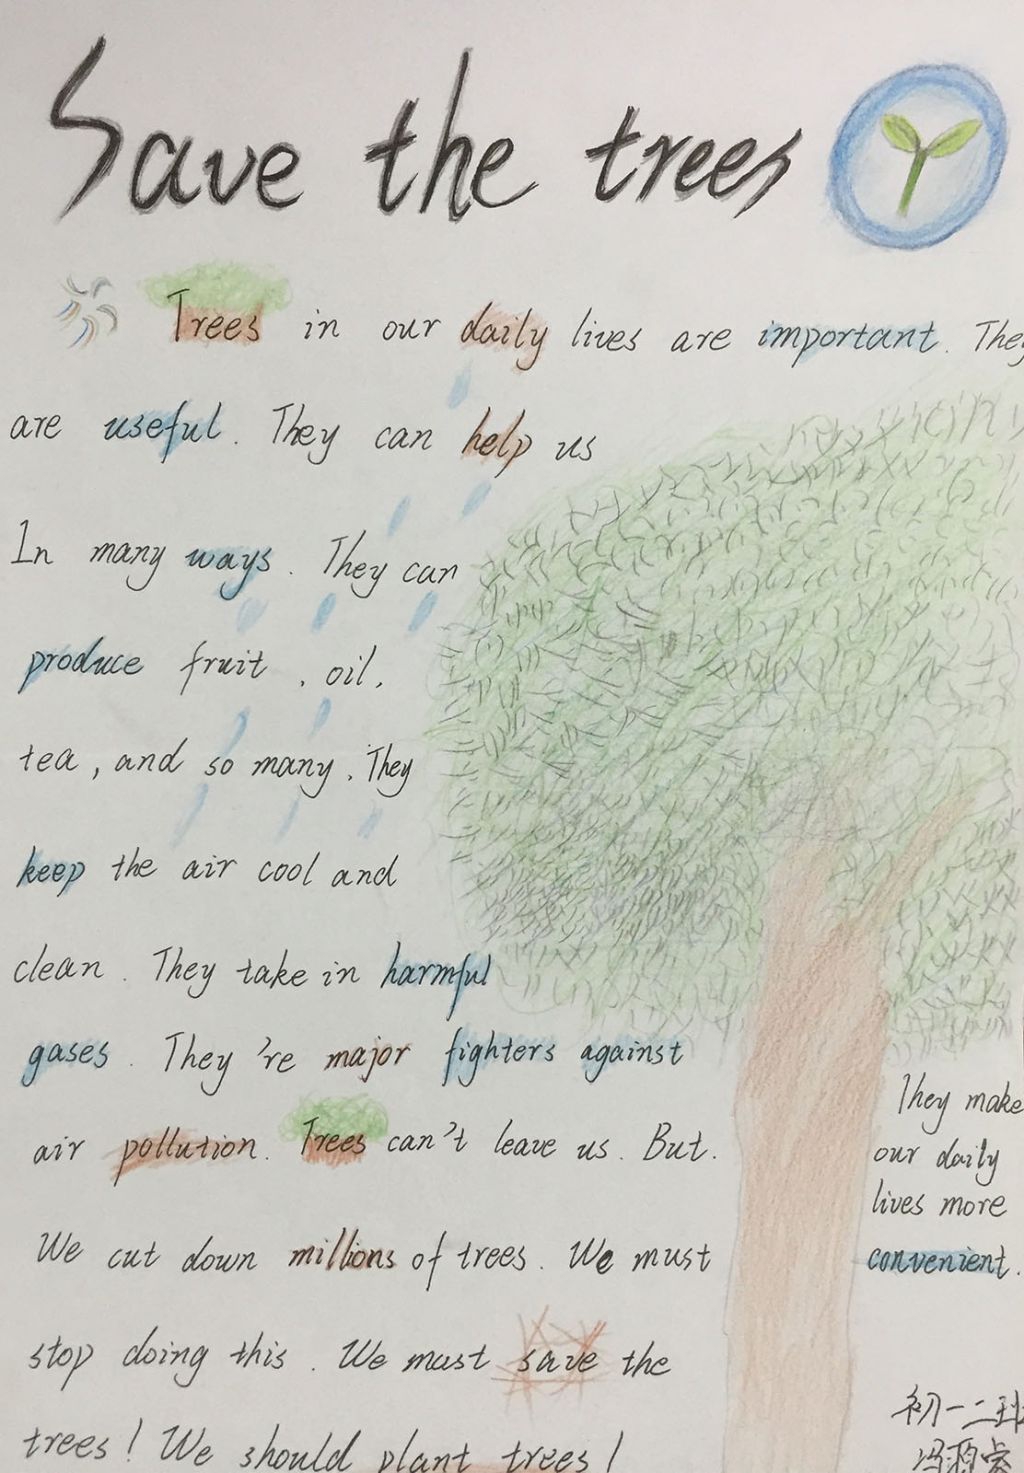 Save the trees
Trees in our daily lives are important. They
are useful. They can help us
In many ways. They can
produce fruit, oil,
tea, and so many. They
keep the air cool and
clean. They take in harmful
gases. They're major fighters against
air pollution. Trees can't leave us. But.
We cut down millions of trees. We must
stop doing this. We must save the
trees! We should plant trees!
They make
our daily
lives more
convenient.
初一二班